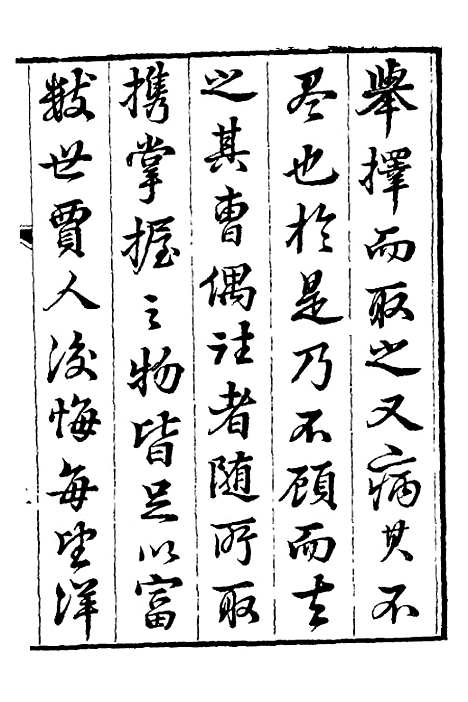 舉擇而取之又病其不
尽也於是乃不顧而去
之其曹偶註者随所取
携掌握之物皆足以富
数世賈人後悔每望洋